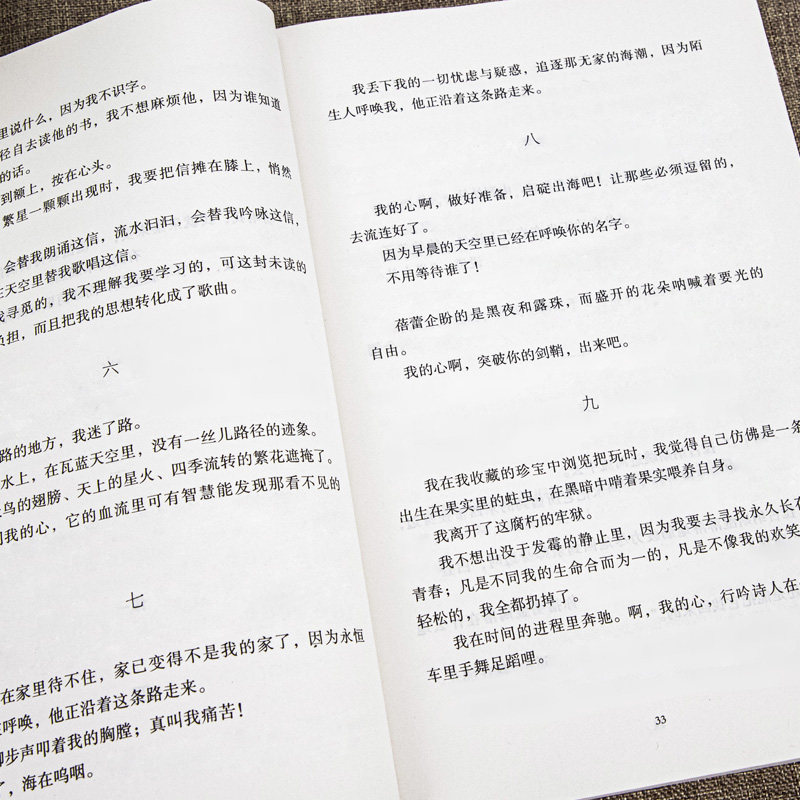 里说什么，因为我不识字。
轻自去读他的书，我不想麻烦他，因为谁知道
的话。
到额上，按在心头。
繁星一颗颗出现时，我要把信摊在膝上，悄然
会替我朗诵这信，流水汩汩，会替我吟咏这信，
在天空里替我歌唱这信。
我寻觅的，我不理解我要学习的，可这封未读的
负担，而且把我的思想转化成了歌曲。
六
路的地方，我迷了路。
水上，在瓦蓝天空里，没有一丝儿路径的迹象。
鸟的翅膀、天上的星火、四季流转的繁花遮掩了。
问我的心，它的血流里可有智慧能发现那看不见的
七
在家里待不住，家已变得不是我的家了，因为永恒
呼唤，他正沿着这条路走来。
脚步声叩着我的胸膛；真叫我痛苦！
了，海在呜咽。
我丢下我的一切忧虑与疑惑，追逐那无家的海潮，因为陌
生人呼唤我，他正沿着这条路走来。
八
我的心啊，做好准备，启碇出海吧！让那些必须逗留的，
去流连好了。
因为早晨的天空里已经在呼唤你的名字。
不用等待谁了！
蓓蕾企盼的是黑夜和露珠，而盛开的花朵呐喊着要光的
自由。
我的心啊，突破你的剑鞘，出来吧。
九
我在我收藏的珍宝中浏览把玩时，我觉得自己仿佛是一条
出生在果实里的蛀虫，在黑暗中啃着果实喂养自身。
我离开了这腐朽的牢狱。
我不想出没于发霉的静止里，因为我要去寻找永久长在
青春；凡是不同我的生命合而为一的，凡是不像我的欢笑
轻松的，我全都扔掉了。
我在时间的进程里奔驰。啊，我的心，行吟诗人在
车里手舞足蹈哩。
33